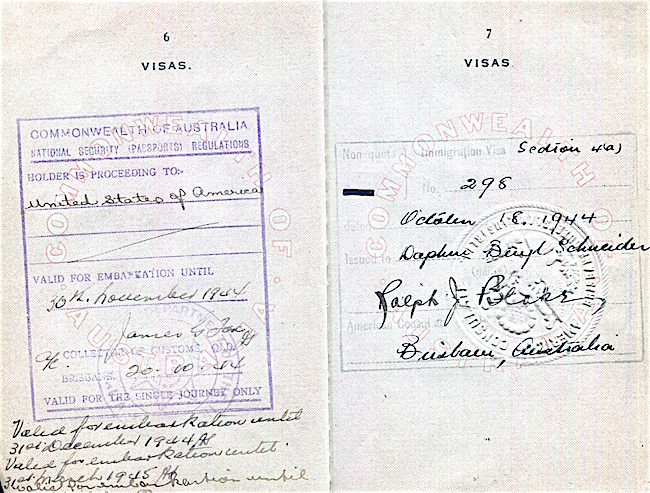 6
VISAS.
COMMONWEALTH OF AUSTRALIA
NATIONAL SECURITY (PASSPORTS) REGULATIONS
HOLDER IS PROCEEDING TO:-
United States of America
VALID FOR EMBARKATION UNTIL
30th. November 1944
James G
COLLECTOR OF CUSTOMS, QLD.
BRISBANE. 20.10.44
VALID FOR THE SINGLE JOURNEY ONLY
Valid for embarkation until
31st December 1944
Valid for embarkation until
31st March 1945
Valid for embarkation until
COMMONWEALTH OF AUSTRALIA
7
VISAS
Non-quota Immigration Visa Section 4(a)
No. 298
October 18, 1944
Issued to Daphne Beryl Schneider
Ralph J. Blake
American Consul
Brisbane, Australia
COMMONWEALTH OF